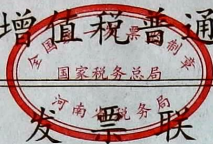 增值税普通
全国统一发票监制章
国家税务总局
河南省税务局
发票联